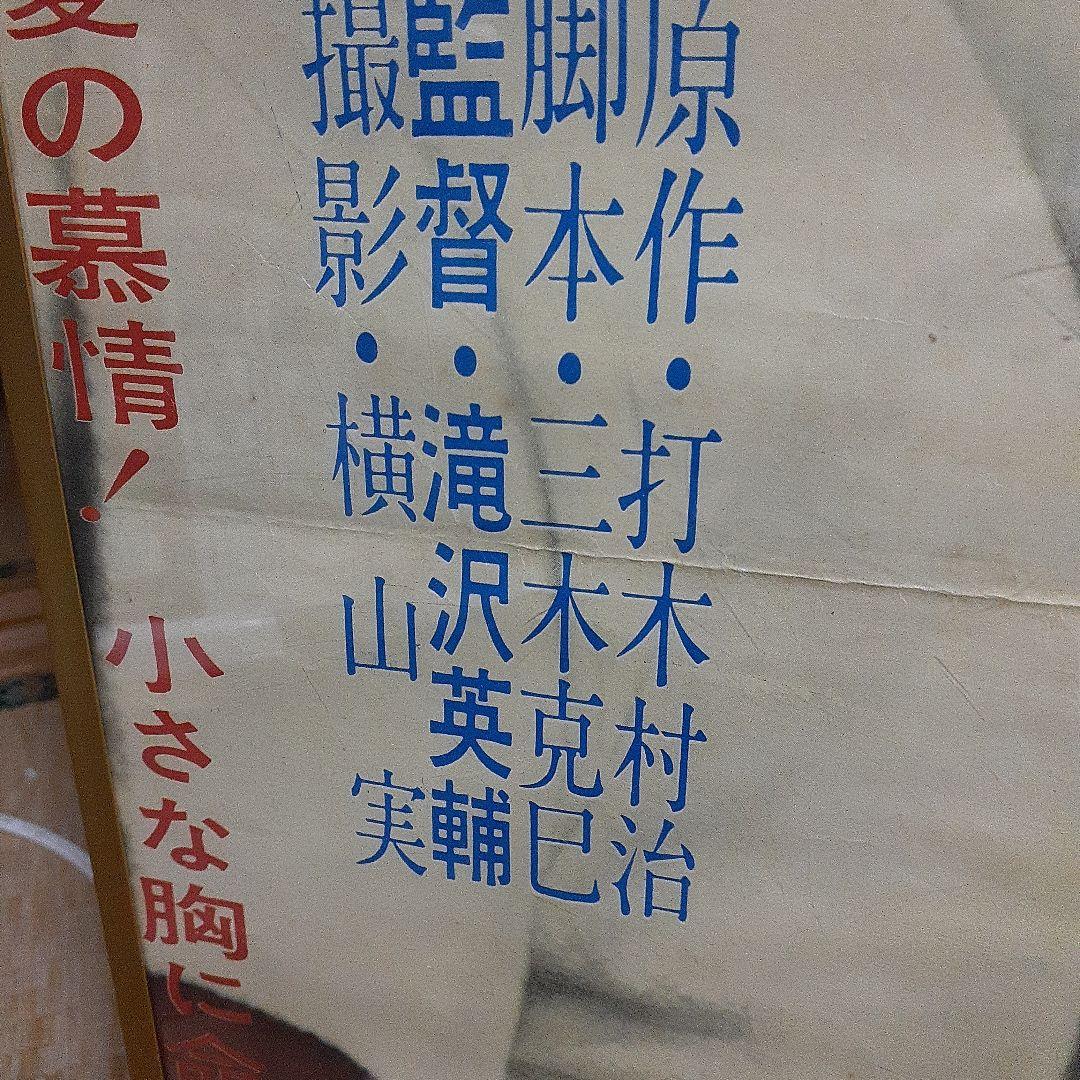 原作・打木村治
脚本・三木克巳
監督・滝沢英輔
撮影・横山実
の慕情！ 小さな胸に